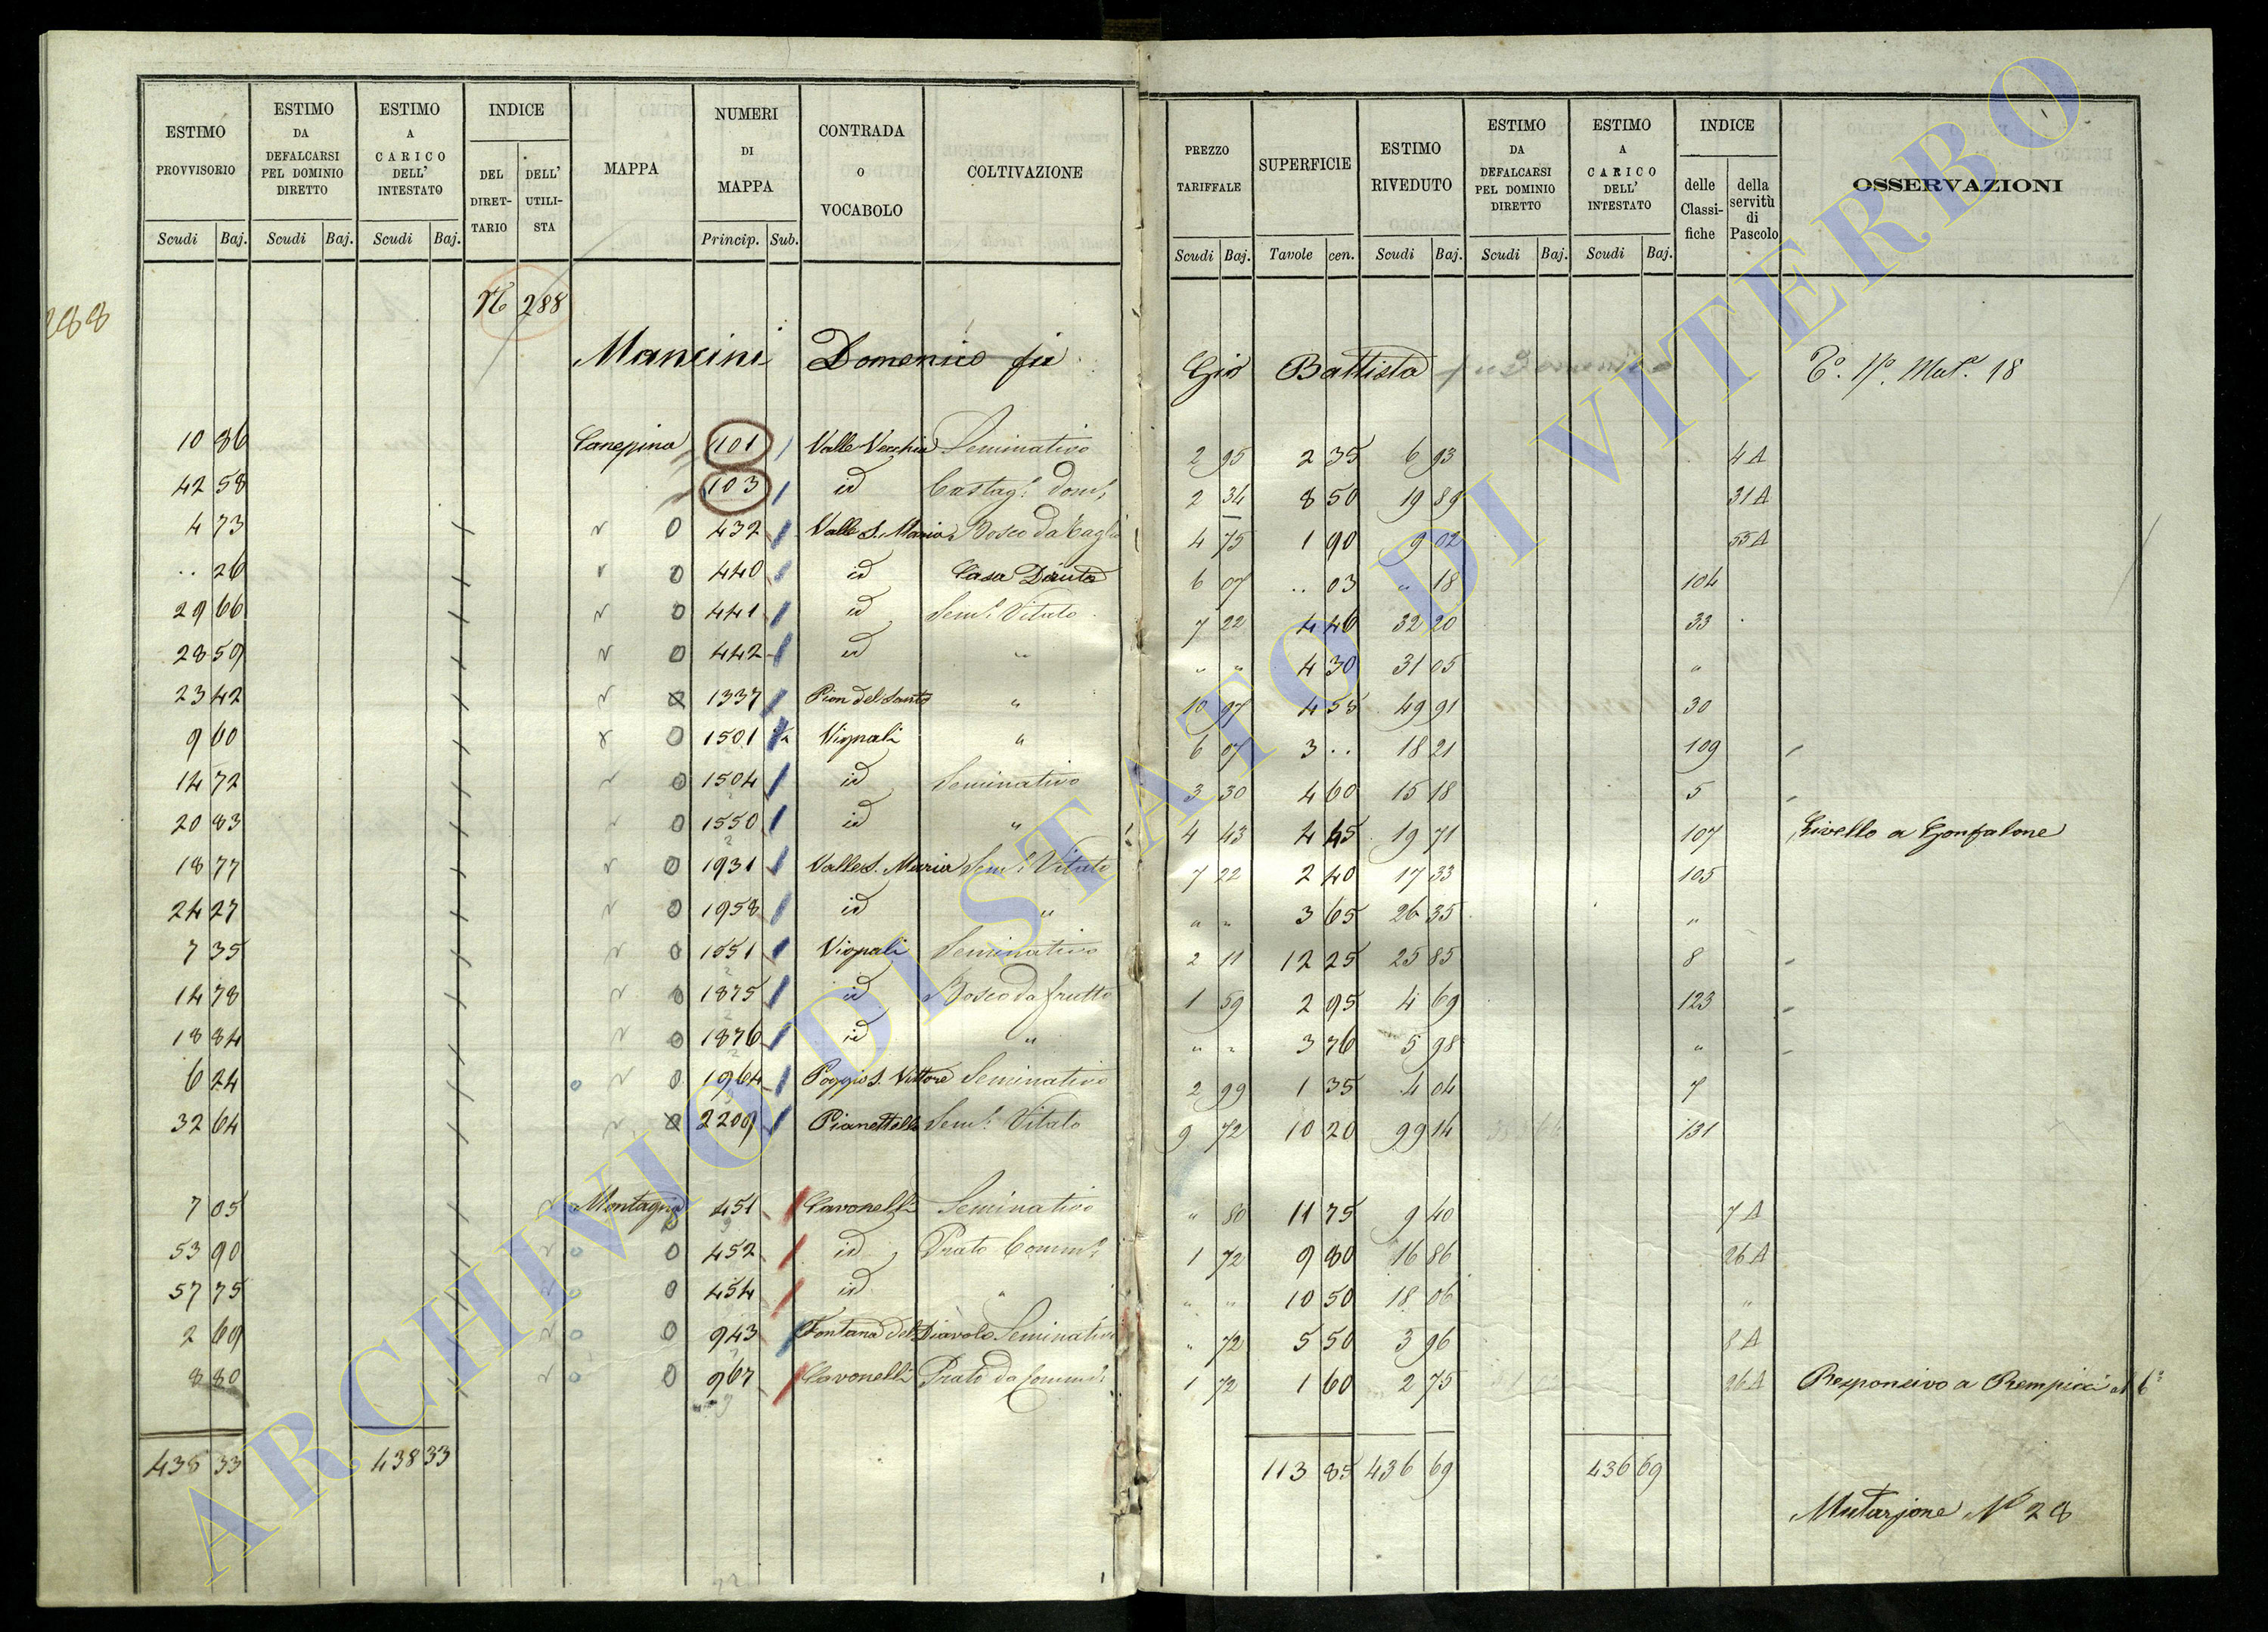 ESTIMO PROVVISORIO
Scudi Baj.
ESTIMO DA DEFALCARSI PEL DOMINIO DIRETTO
Scudi Baj.
ESTIMO A CARICO DELL' INTESTATO
Scudi Baj.
INDICE
DEL DIRET-TARIO
DELL' UTILI-STA
MAPPA
NUMERI DI MAPPA
Princip. Sub.
CONTRADA o VOCABOLO
COLTIVAZIONE
PREZZO TARIFFALE
Scudi Baj.
SUPERFICIE
Tavole cen.
ESTIMO RIVEDUTO
Scudi Baj.
ESTIMO DA DEFALCARSI PEL DOMINIO DIRETTO
Scudi Baj.
ESTIMO A CARICO DELL' INTESTATO
Scudi Baj.
INDICE
delle Classi-fiche
della servitù di Pascolo
OSSERVAZIONI
288
N 288
Mancini Domenico fu Gio Battista fu Domenico
Mut. 18
10 86 Canepina 101 Valle Vecchia Seminativo 2 95 2 35 6 93 4A
42 58 103 id Castag. dom. 2 34 8 50 19 89 31A
4 73 432 Valle S. Maria Bosco da taglio 4 75 1 90 9 02 55A
.. 26 440 id Casa Diruta 6 07 .. 03 " 18 104
29 66 441 id Sem. Vitato 7 22 4 46 32 20 33
28 59 442 id " " " 4 30 31 05 "
23 42 1337 Pian del Santo " 10 97 4 55 49 91 30
9 60 1501 Vignali " 6 07 3 .. 18 21 109
14 72 1504 id Seminativo 3 30 4 60 15 18 5
20 83 1550 id " 4 43 4 45 19 71 107 Livello a Gonfalone
18 77 1931 Valle S. Maria Sem. Vitato 7 22 2 40 17 33 105
24 27 1958 id " " " 3 65 26 35 "
7 35 1551 Vignali Seminativo 2 11 12 25 25 85 8
14 78 1875 id Bosco da frutto 1 59 2 95 4 69 123
18 84 1876 id " " " 3 76 5 98 "
6 24 1964 Poggio S. Vittore Seminativo 2 99 1 35 4 04 7
32 64 2209 Pianettelle Sem. Vitato 9 72 10 20 99 14 131
7 05 Montagna 451 Cavonelli Seminativo " 80 11 75 9 40 7A
53 90 452 id Prato Comm. 1 72 9 80 16 86 26A
57 75 454 id " " " 10 50 18 06 "
2 69 943 Fontana del Diavolo Seminativo " 72 5 50 3 96 8A
8 80 967 Cavonelli Prato da Comm. 1 72 1 60 2 75 26A Responsivo a Rempicci al 6
438 33 438 33 113 85 436 69 436 69
Mutazione N 28
ARCHIVIO DI STATO DI VITERBO